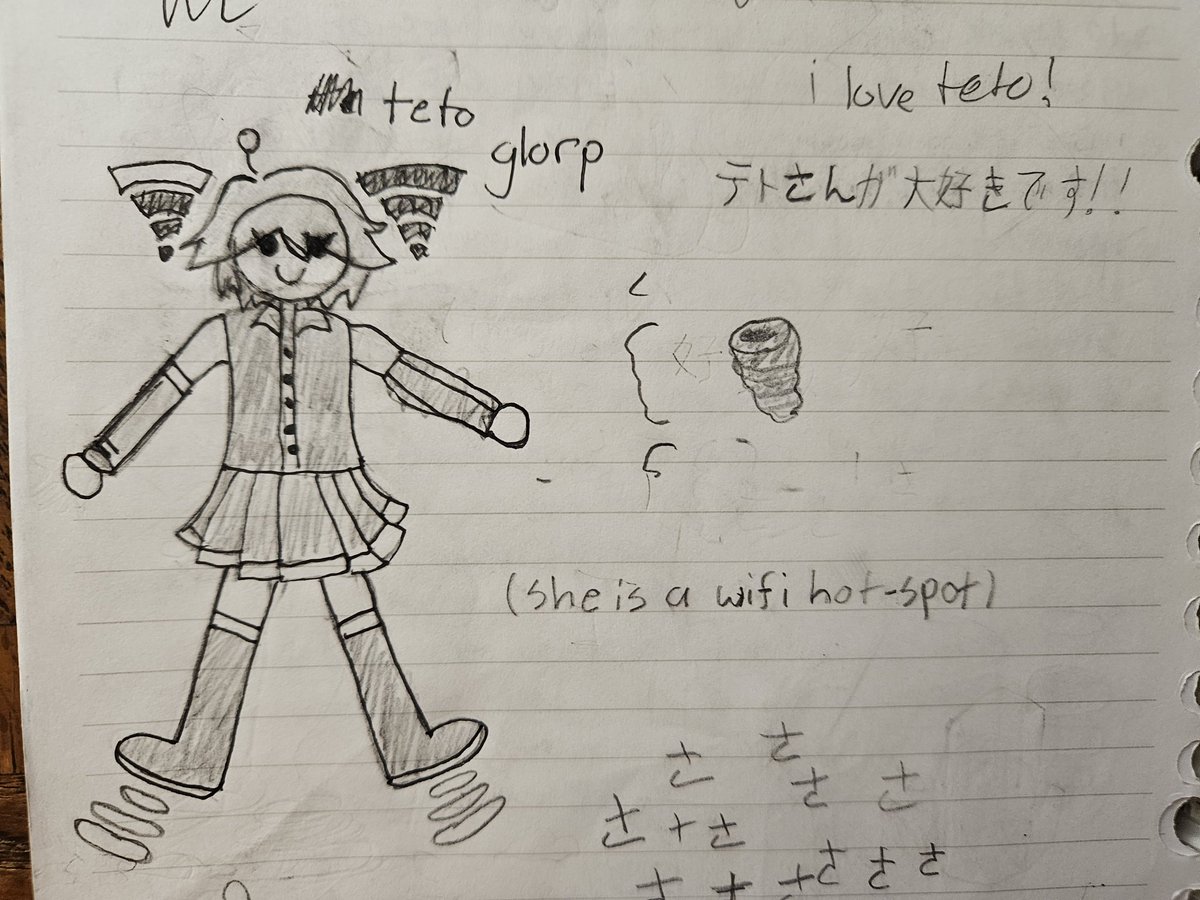 teto
i love teto!
glorp
テトさんが大好きです!!
く
好
(she is a wifi hot-spot)
さ
さ
さ さ
さ + さ
さ さ さ